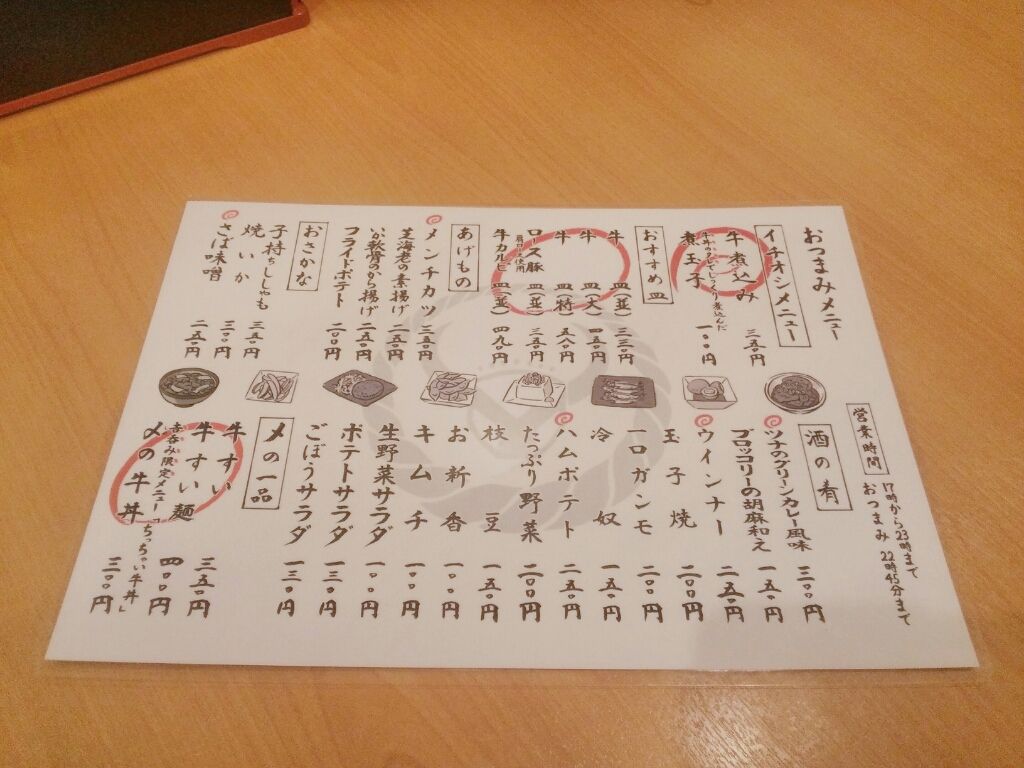 おつまみメニュー
イチオシメニュー
牛煮込み 三五〇円
煮玉子 一〇〇円
おすすめ皿
牛皿(並) 三三〇円
牛皿(大) 四五〇円
牛皿(特) 五八〇円
ロース豚皿(並) 三五〇円
肩ロース使用
牛カルビ皿(並) 四九〇円
あげもの
メンチカツ 三五〇円
芝海老の素揚げ 二五〇円
いか軟骨のから揚げ 二五〇円
フライドポテト 二〇〇円
おさかな
子持ちししゃも 三五〇円
焼いか 三〇〇円
さば味噌 二五〇円
営業時間
17時から23時まで
おつまみ 22時45分まで
酒の肴
ツナのクリーンカレー風味 三〇〇円
ブロッコリーの胡麻和え 一五〇円
ウインナー 二五〇円
玉子焼 二〇〇円
一口ガンモ 二〇〇円
冷奴 一五〇円
ハムポテト 二五〇円
たっぷり野菜 二〇〇円
枝豆 一五〇円
お新香 一〇〇円
キムチ 一〇〇円
生野菜サラダ 一〇〇円
ポテトサラダ 一三〇円
ごぼうサラダ 一三〇円
〆の一品
牛すい 三五〇円
牛すい麺 四〇〇円
吉呑み限定メニュー「ちっちゃい牛丼」
〆の牛丼 三〇〇円